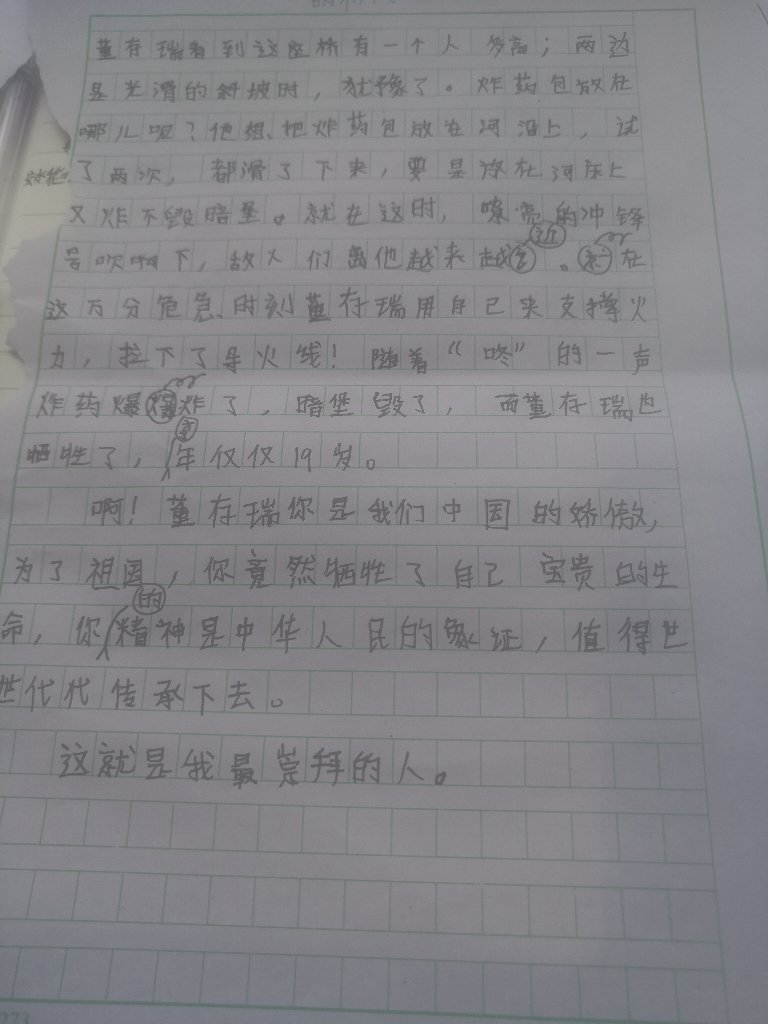 董存瑞看到这座桥有一个人多高；两边
是光滑的斜坡时，犹豫了。炸药包放在
哪儿呢？他想、把炸药包放在河沿上，试
了两次，都滑了下来，要是放在河床上
又炸不毁暗堡。就在这时，嘹亮的冲锋
号吹响下，敌人们离他越来越近。在
这万分危急、时刻董存瑞用自己来支撑火
力，拉下了导火线！随着“咚”的一声
炸药爆炸了，暗堡毁了，而董存瑞也
牺牲了，年仅仅19岁。
啊！董存瑞你是我们中国的骄傲，
为了祖国，你竟然牺牲了自己宝贵的生
命，你的精神是中华人民的象证，值得世
世代代传承下去。
这就是我最崇拜的人。